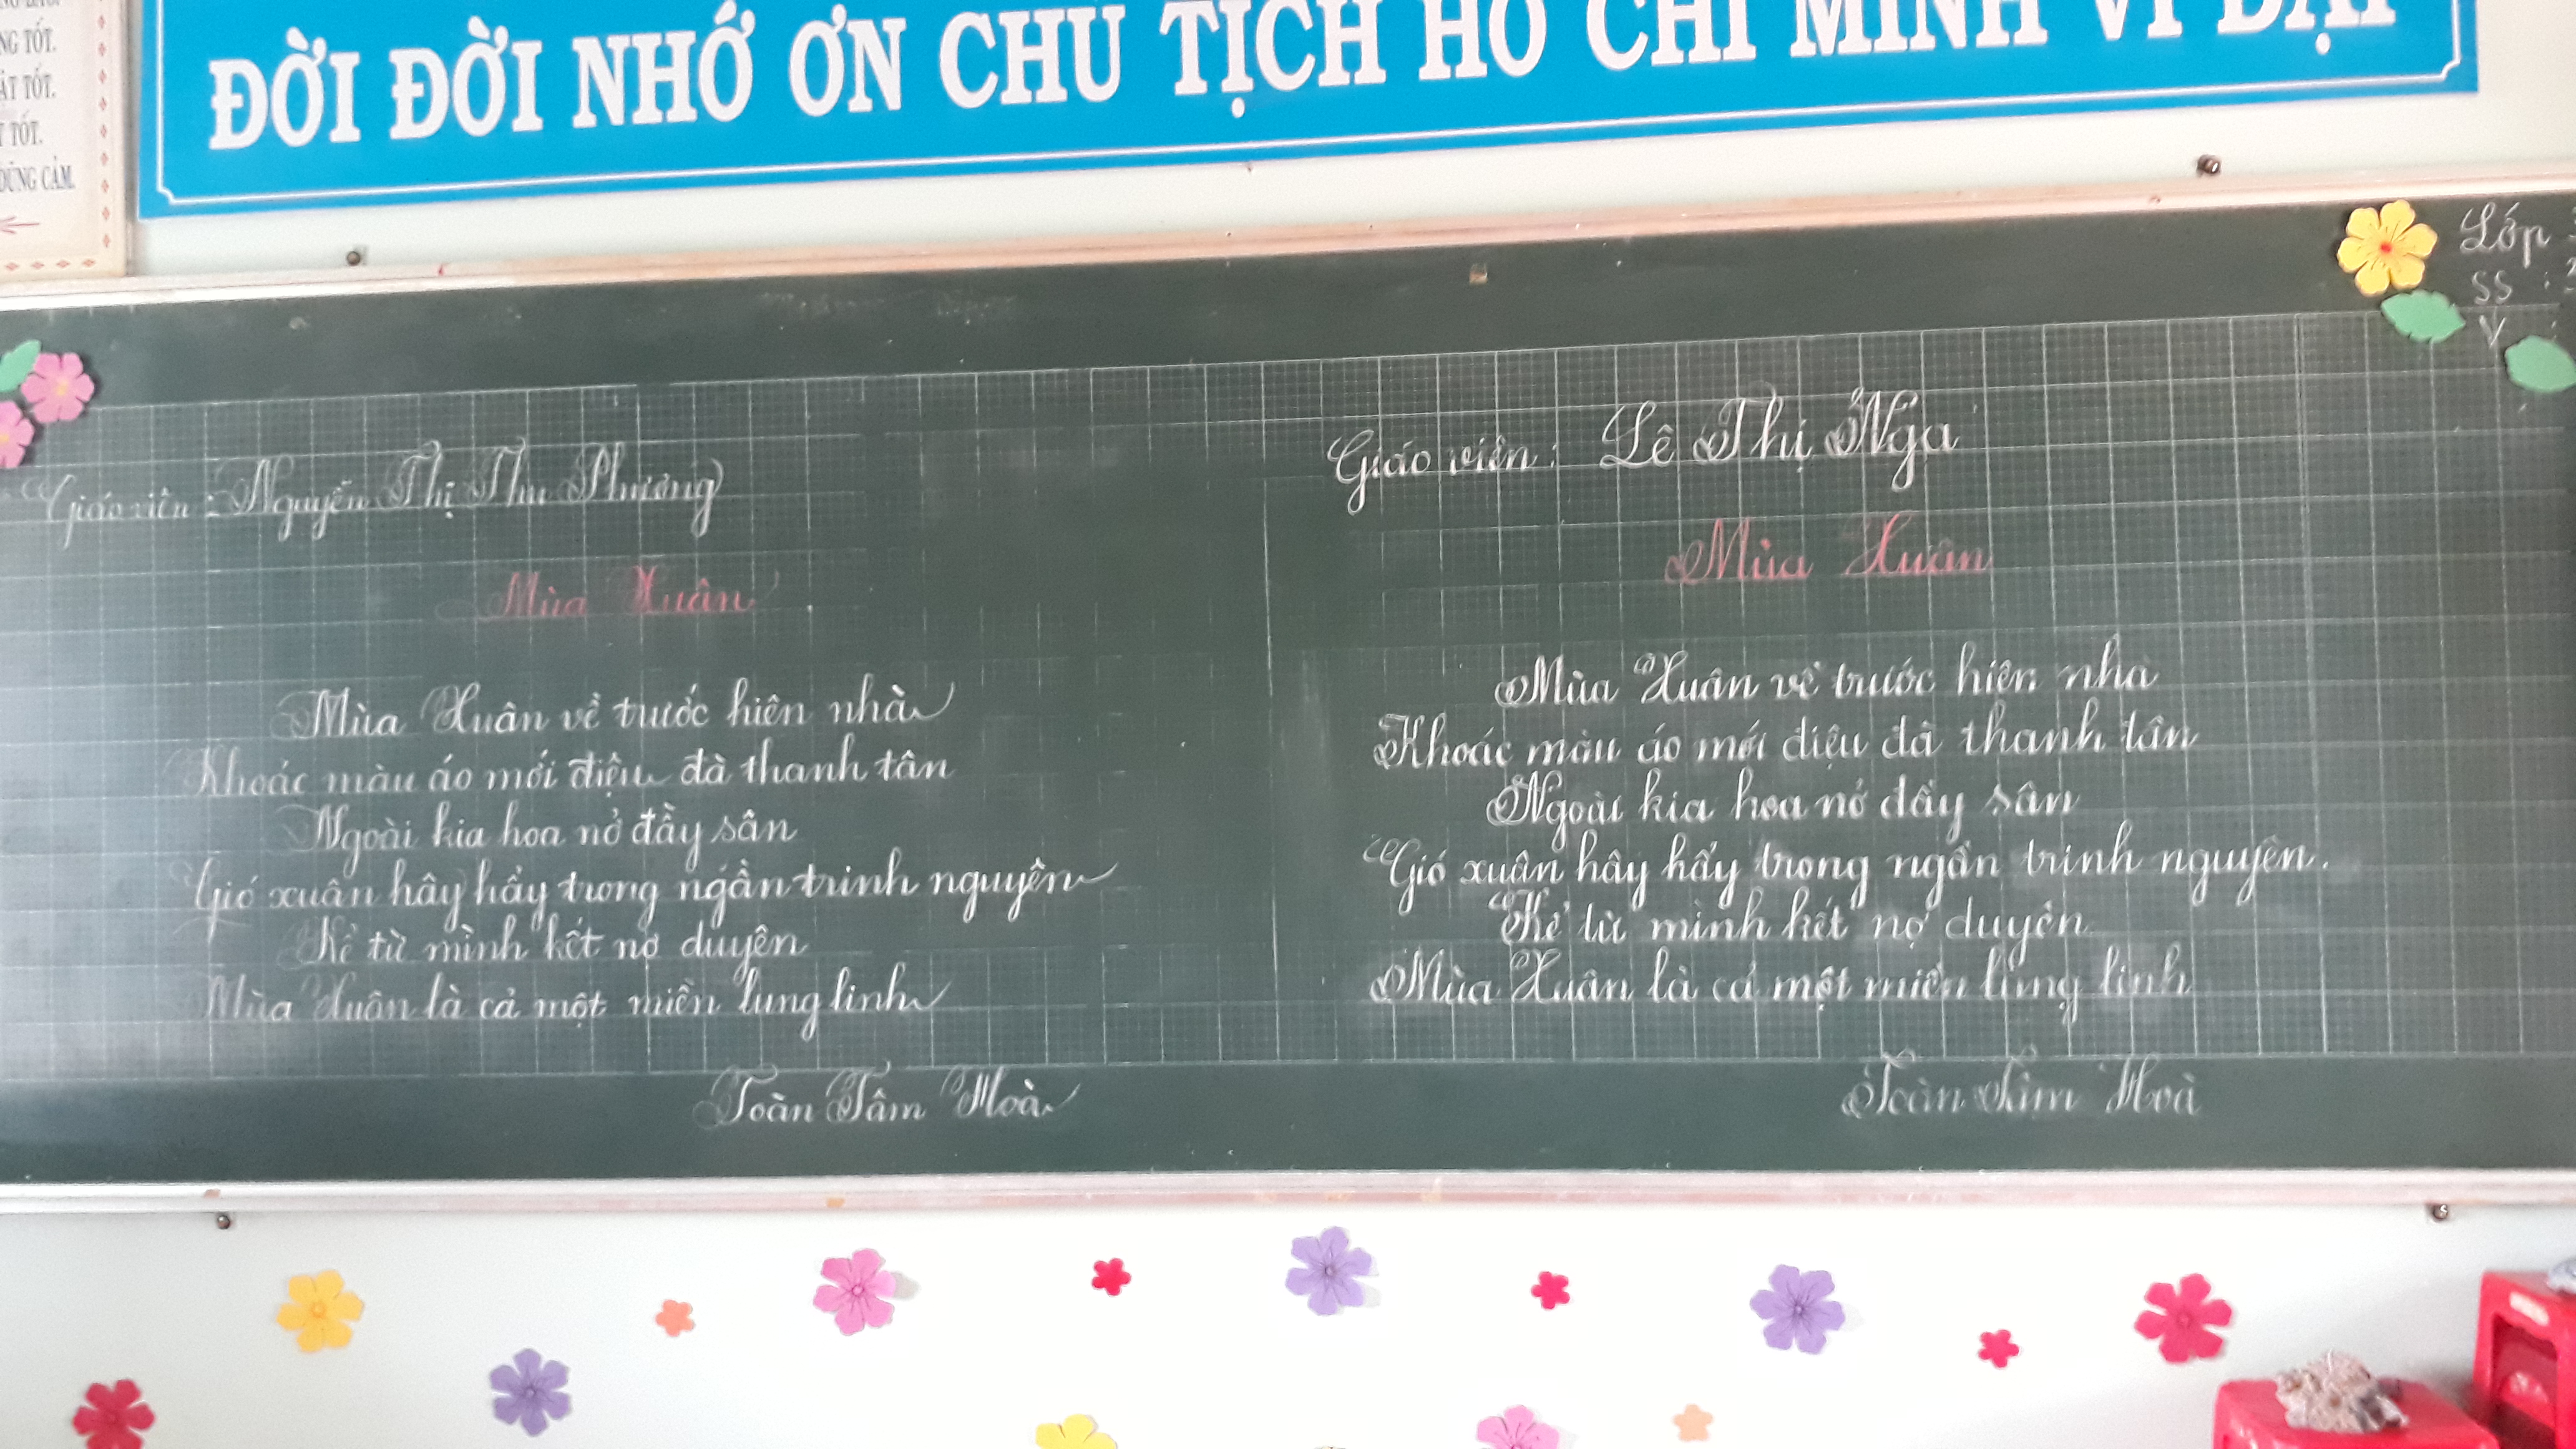 NG TỐT.
ẬT TỐT.
T TỐT.
DŨNG CẢM.
ĐỜI ĐỜI NHỚ ƠN CHỦ TỊCH HỒ CHÍ MINH VĨ ĐẠI
Lớp
SS :
V :
Giáo viên : Nguyễn Thị Thu Phương
Mùa Xuân
Mùa Xuân về trước hiên nhà
Khoác màu áo mới điệu đà thanh tân
Ngoài kia hoa nở đầy sân
Gió xuân hây hẩy trong ngần trinh nguyên
Kể từ mình kết nợ duyên
Mùa Xuân là cả một miền lung linh
Toàn Tâm Hoà
Giáo viên : Lê Thị Nga
Mùa Xuân
Mùa Xuân về trước hiên nhà
Khoác màu áo mới điệu đà thanh tân
Ngoài kia hoa nở đầy sân
Gió xuân hây hẩy trong ngần trinh nguyên.
Kể từ mình kết nợ duyên
Mùa Xuân là cả một miền lung linh
Toàn Tâm Hoà